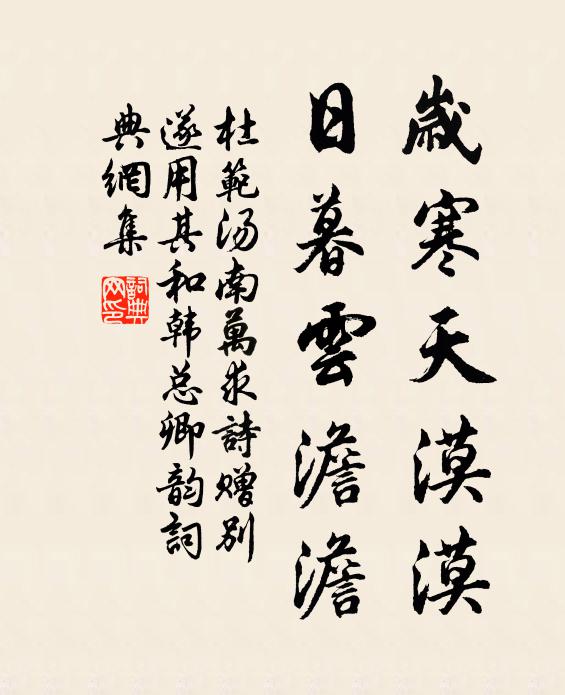 歲寒天漠漠
日暮雲澹澹
杜範汤南萬求詩贈别
遂用其和韩总卿韵詞
典網集
詞典网印